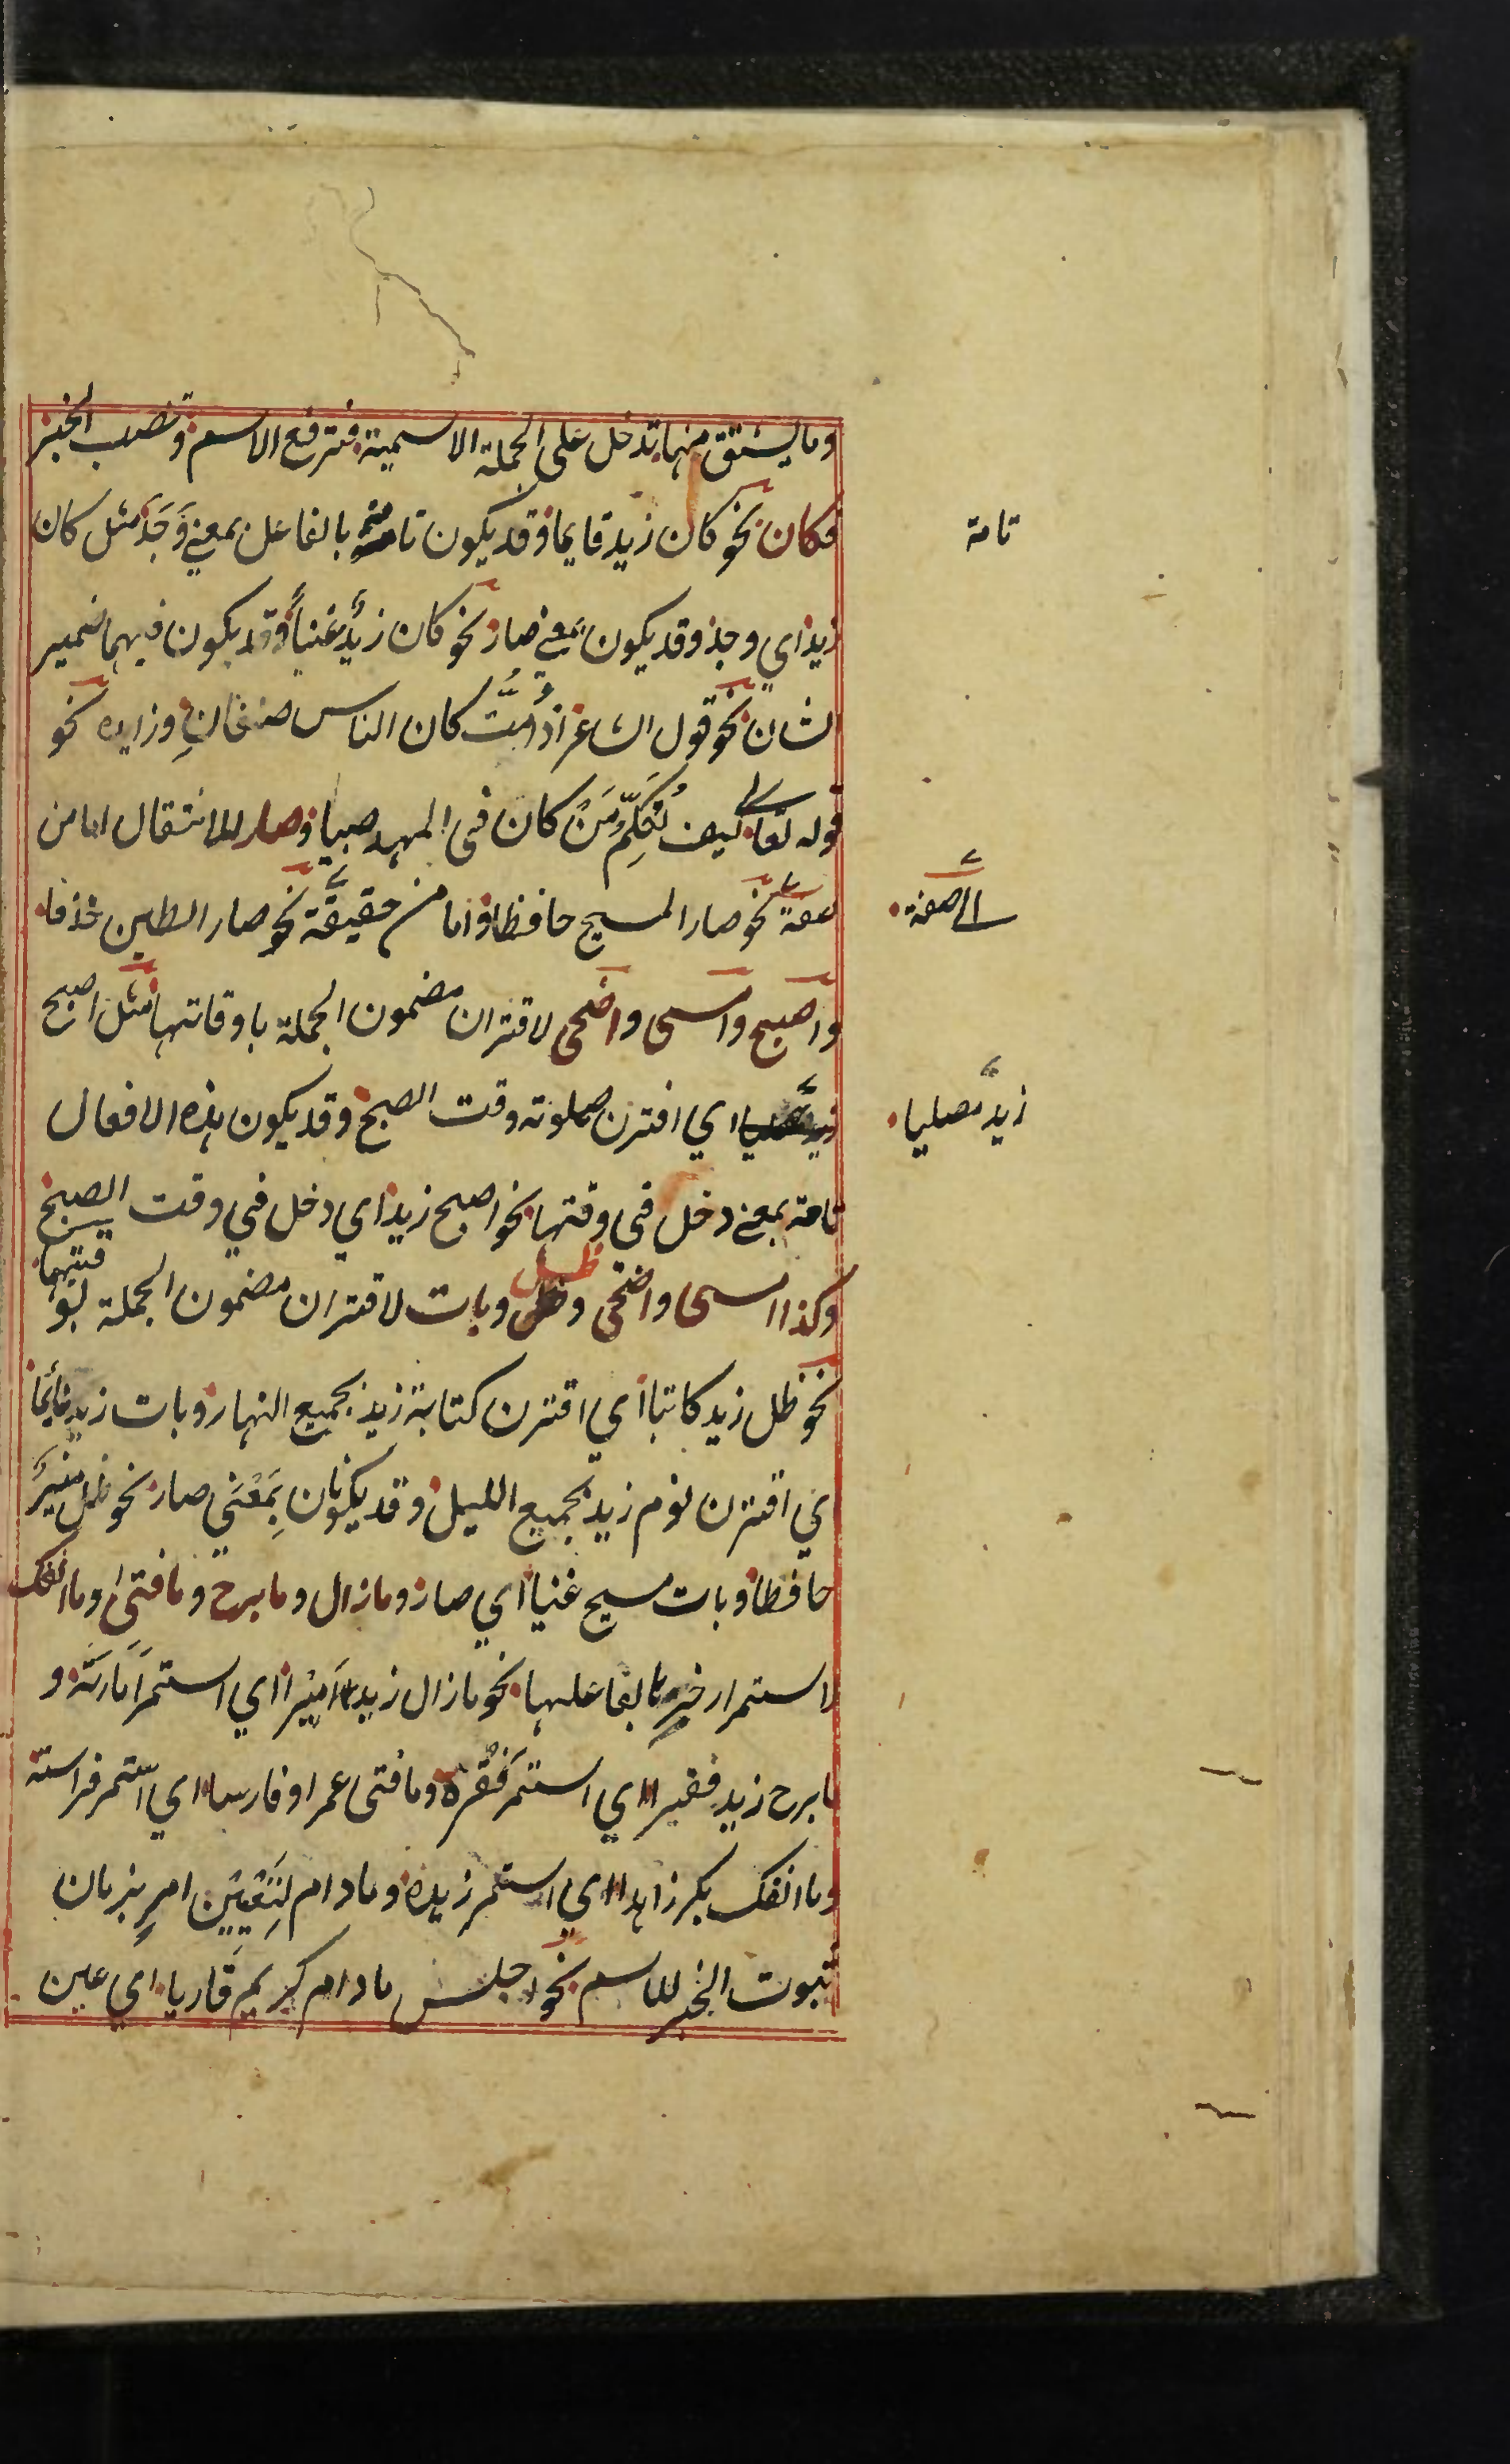 وما يشتق منها تدخل على الجملة الاسمية فترفع الاسم وتنصب الخبر
فكان نحو كان زيد قايما وقد يكون تامة بالفاعل بمعنى وَجَدَ مثل كان
زيد اي وجد وقد يكون بمعنى صار نحو كان زيدٌ غنياً وقد يكون فيها ضمير
الشان نحو قول الشاعر اذ امتُّ كان الناس صنفانِ وزايده نحو
قوله تعالى كيف نُكَلِّمُ مَنْ كان فى المهد صبيا وصار للانتقال اما من
صفة نحو صار المسيح حافظا واما من حقيقة نحو صار الطين خذفا
واصبح وامسى واضحى لاقتران مضمون الجملة باوقاتها مثل اصبح
اي اقترن صلوته وقت الصبح وقد يكون هذه الافعال
تامة بمعنى دخل فى وقتها نحو اصبح زيد اي دخل في وقت الصبح
وكذا امسى واضحى وظل وبات لاقتران مضمون الجملة بوقتيها
نحو ظل زيد كاتبا اي اقترن كتابة زيد بجميع النهار وبات زيد نائما
اي اقترن نوم زيد بجميع الليل وقد يكونان بِمَعْنَي صار نحو ظل
حافظا وبات مسيح غنيا اي صار وما زال وما برح وما فتى وما انفك
لاستمرار خبرها لفاعلها نحو ما زال زيد اَمِيْرا اي استمر اَمَارتَه و
ما برح زيد فقيرا اي استمر فَقْرُه وما فتى عمرا وفارسا اي استمر فراسته
وما انفك بكر زاهدا اي استمر زهده وما دام لِتَعْيِيْن امرٍ بزمان
ثبوت الخبر للاسم نحو اجلس ما دام كريم قاريا اي عين
تامة
الى صفة
زيد مصليا